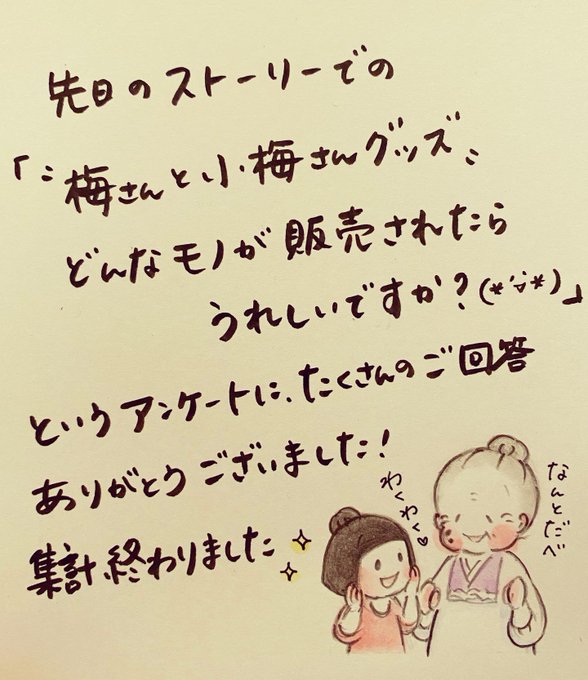 先日のストーリーでの
「:梅さんと小梅さんグッズ:
どんなモノが販売されたら
うれしいですか?(*´ṿ`*)」
というアンケートに、たくさんのご回答
ありがとうございました!
集計、終わりました
わくわく♡
なんとだべ